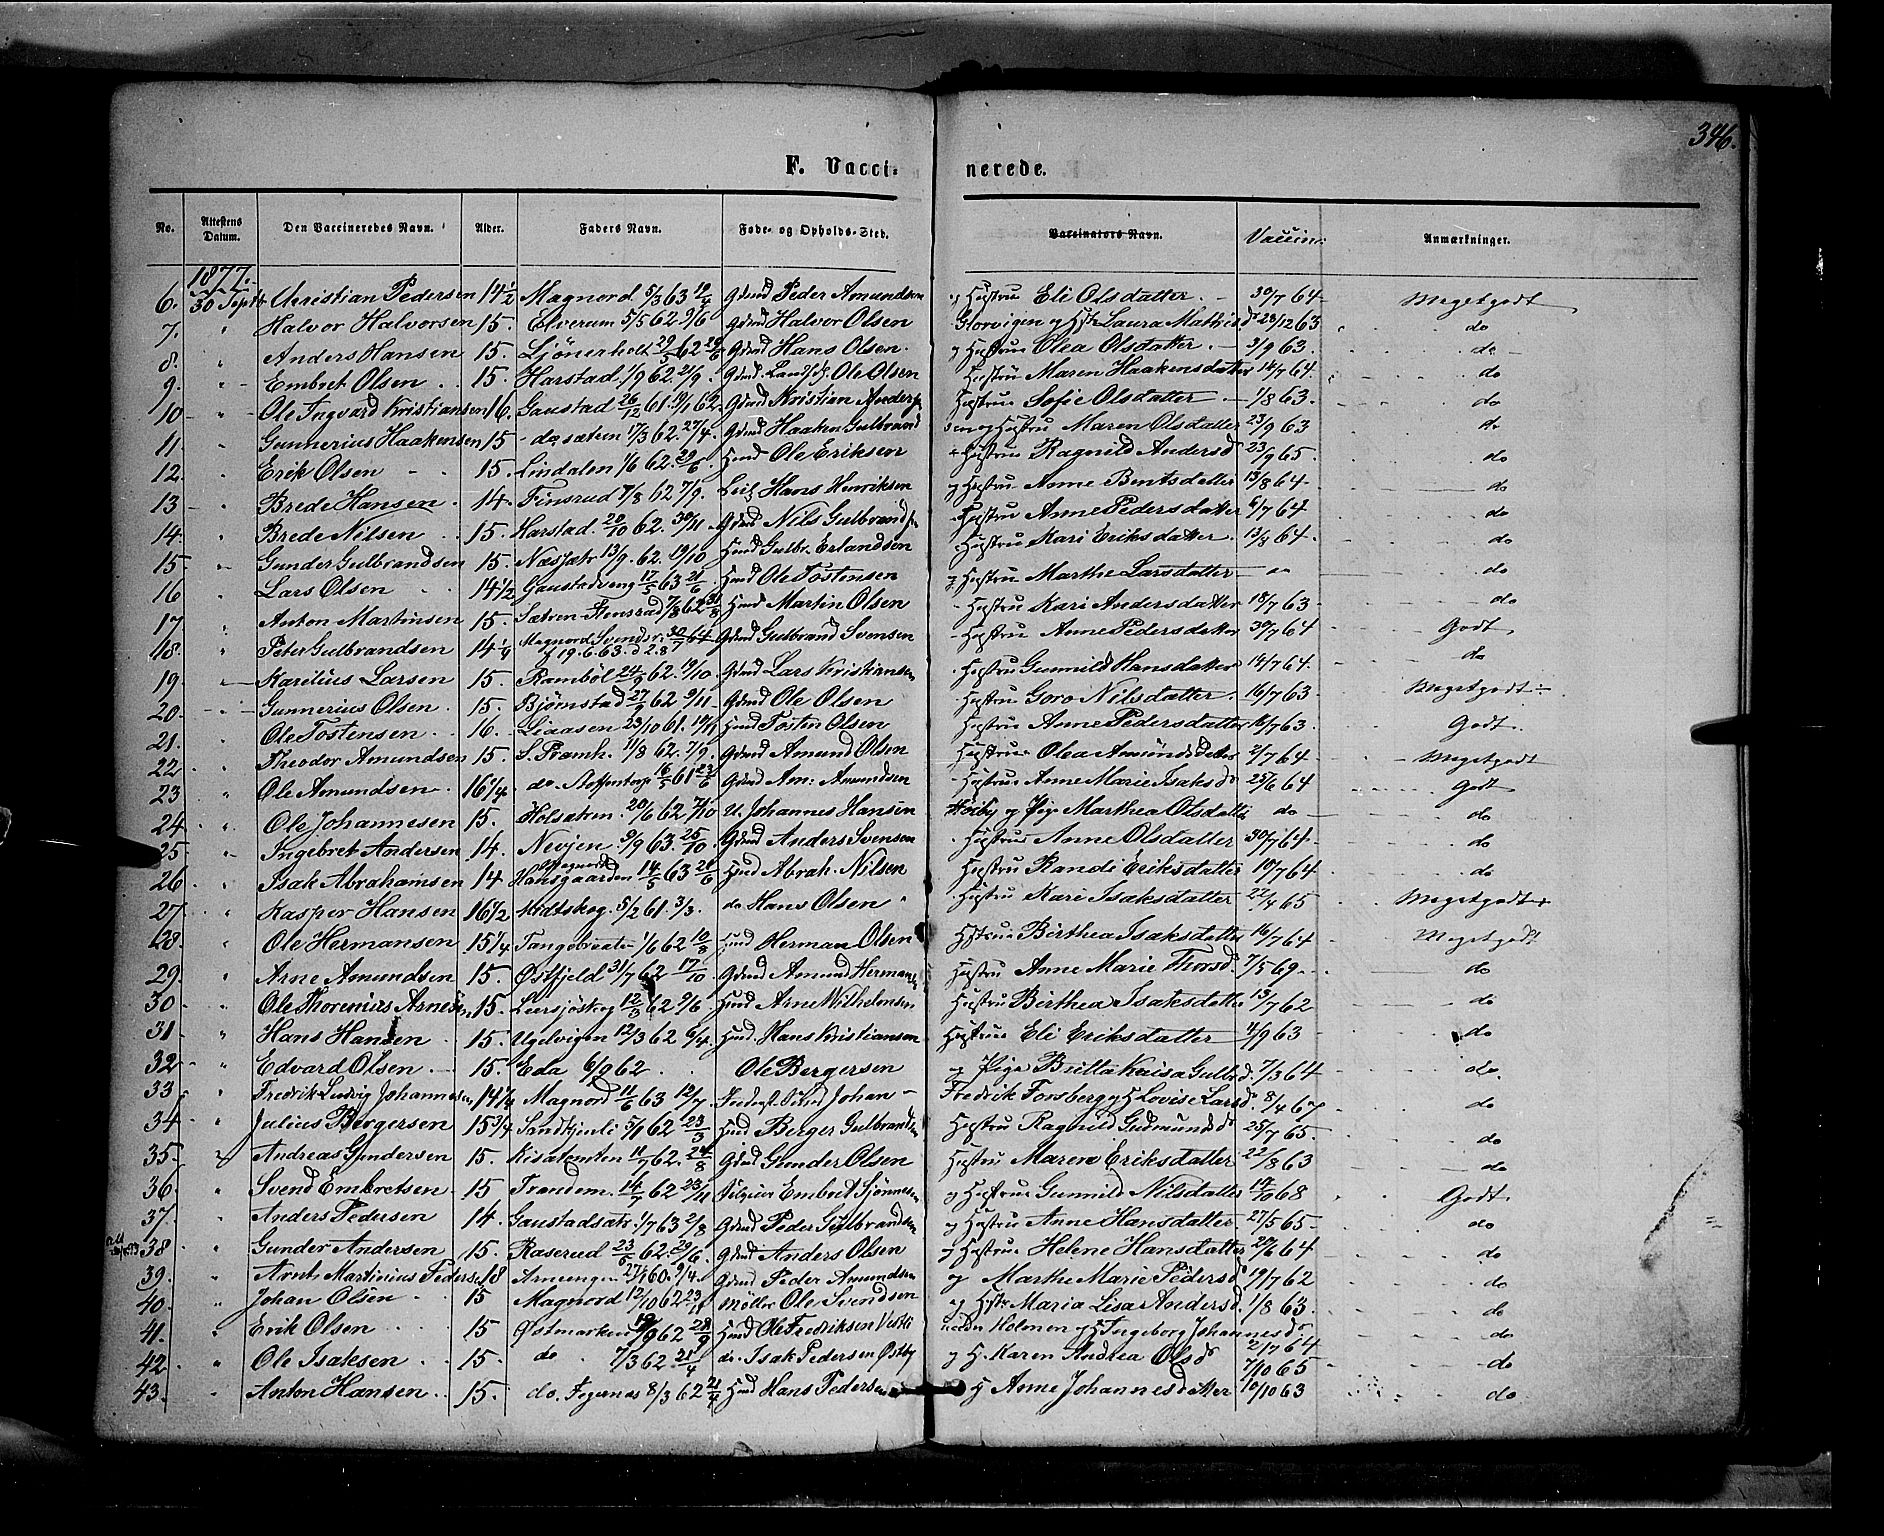 346.
F. Vaccinerede.
No. Attestens Datum. Den Vaccineredes Navn. Alder. Faders Navn. Føde- og Opholds-Sted. Vaccinators Navn. Vaccin: Anmærkninger.
1877.
6. 30 Septbr Christian Pedersen 14 1/2 Magnord 5/3 63 19/4 Gdmd Peder Amundsen og Hustru Eli Olsdatter. 30/7 64 Megetgodt
7. " Halvor Halvorsen 15. Elverum 5/5 62. 9/6 Gdmd Halvor Olsen Laura Mathisd 28/12 63 do
8. " Anders Hansen 15. 29/5 62 Gdmd Hans Olsen. og Hustru Olea Olsdatter. 3/9 63. do
9. " Embret Olsen 15. Harstad 1/9 62. 21/9. Ole Olsen Hustru Maren Haakensdatter 14/7 64. do
10 " Ole Ingvard Kristiansen 16. Gaustad 26/12 61. 19/1 62. Gdmd Kristian Hustru Sofie Olsdatter 1/8 63. do
11. " Gunnerius Haakensen 15 do sætern 17/3 62. 27/4. Gdmd Haaken Gulbrand sen og Hustru Maren Olsdatter 23/9 63 do
12. " Erik Olsen 15. Lindalen 1/6 62. 29/6. Hmd Ole Eriksen Hustru Ragnild Andersd 23/9 65. do
13 " Brede Hansen 14. Finsrud 7/8 62 7/9. Hans Henriksen og Hustru Anne Berntsdatter 13/8 64. do
14. " Brede Nilsen 15. Harstad. 20/10 62. 30/11 Gdmd Nils Gulbrandsen Hustru Anne Pedersdatter 6/7 64 do
15 " Gunder Gulbrandsen 15. 13/9. 62. 19/10 Hmd Gulbr. Erlandsen Hustru Kari Eriksdatter. 13/8 64. do
16 " Lars Olsen 14 1/2 Gaustadveng 17/5 63 21/6 Hmd Ole Tostensen og Hustru Marthe Larsdatter do
17 " Anton Martinsen 15. 7/8 62 31/8 Hmd Martin Olsen Hustru Kari Andersdatter 18/7 63. do
18. " Peter Gulbrandsen 14 1/4 Magnord 19. 6. 63. Gdmd Gulbrand Svensen Hustru Anne Pedersdatter 30/7 64 Godt
19. " Karelius Larsen 15. Rambøl 24/9 62 19/10 Gdmd Lars Kristiansen Hustru Gunnild Hansdatter 14/7 64. do
20. " Gunnerius Olsen 15. Bjørnstad 27/9 62 9/11 Gdmd Ole Olsen Hustru Goro Nilsdatter. 16/7 63. Megetgodt
21. " Ole Tostensen 16. Liaasen 23/10 61. 17/11 Hmd Tosten Olsen Hustru Anne Pedersdatter 16/7 63. Godt.
22 " Theodor Amundsen 15. 11/8 62. 7/9. Gdmd Amund Olsen Hustru Olea Amundsdatter 2/7 64 Megetgodt
23 " Ole Amundsen. 16 1/4 do. 16/5 61 23/6 Gdmd Am: Amundsen Hustru Anne Marie Isaksd. 25/6 64 Godt
24 " Ole Johannesen 15. Holsætren. 20/6 62 7/10 U. Johannes Hansen og Pige Marthea Olsdatter do do
25 " Ingebret Andersen 14. 9/9 63. 25/10 Gdmd Anders Svensen Hustru Anne Olsdatter 30/7 64 do
26 " Isak Abrahamsen 14 Magnord Hansgaarden 14/5 63 21/6 Hmd Abrah. Nilsen Hustru Randi Eriksdatter 10/7 64 do
27 " Kasper Hansen 16 1/2 Midtskog. 5/2 61. 3/3. do Hans Olsen Hustru Kari Isaksdatter 22/4 65 Megetgodt
28 " Ole Hermansen 15 1/4 1/6 62 10/8 Hmd Herman Olsen Hustru Birthea Isaksdatter 16/7 64 Megetgodt
29 " Arne Amundsen 15. Østfjeld 31/7 62 17/10 Gdmd Amund Hermans Hustru Anne Marie Thorsd 7/5 69. do
30 " Ole Thorenius Arnesen 15. Leersjöskog 12/3 62 9/6 Hmd Arne Wilhelmsen Hustru Birthea Isaksdatter 13/7 62 do
31 " Hans Hansen 15. Ugelvigen 12/3 62 6/4. Hmd. Hans Kristiansen Hustru Eli Eriksdatter 4/9 63 do
32 " Edvard Olsen 15. Eda 6/9 62 Ole Bergersen og Pige Britta Kaisa Gulbd. 7/3 64 do.
33 " Fredrik Ludvig Johannesen 14 1/4 Magnord 11/6 63 12/7. Johan Fredrik Forsberg og H Lovise Larsd. 8/4 67 do
34 " Julius Bergersen 15 3/4 5/1 62 23/3 Hmd Berger Gulbrandsen Hustru Ragnild Gudmundsd 25/7 65. do
35. " Andreas Gundersen 15. 11/7 62. 24/8 Gdmd Gunder Olsen Hustru Maren Eriksdatter 22/8 63 do
36 " Svend Embretsen 15 Trandem. 14/9 62 23/11 Embret og Hustru Gunnild Nilsdatter 68 Godt
37. " Anders Pedersen 14. Gaustadsætr. 1/7 63 2/8 Gdmd Peder Gulbrandsen og Hustru Anne Hansdatter 27/5 65 do
38 " Gunder Andersen 15. Raserud 23/5 62. 29/6. Gdmd Anders Olsen og Hustru Helene Hansdatter 20/6 64 do
39. " Arnt Martinius Pedersen 18 27/1 60. 9/4. Gdmd Peder Amundsen og Marthe Marie Pedersd 19/7 62 do
40. " Johan Olsen 15 Magnord 12/10 62 23/11 Møller Ole Svendsen og Hstr Maria Lisa Andersd. 1/8 63. do
41. " Erik Olsen 15 Østmarken 62 28/9 Hmd Ole Fredriksen Holmen og H Ingeborg Johannesd 2/7 64 do
42 " Ole Isaksen 15. do 7/3 62. 21/4 do. Isak Pedersen Østby og H. Karen Andrea Olsd 7/10 65 do
43. " Anton Hansen 15. do. 8/3 62 21/4 Hmd Hans Pedersen H Anne Johannesdatter 10/10 63 do